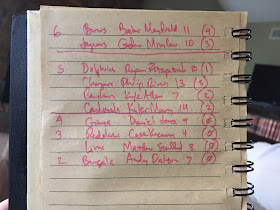 6 Browns Baker Mayfield 11 (9)
Jaguars Gardner Minshew 10 (3)
5 Dolphins Ryan Fitzpatrick 10 (1)
Chargers Philip Rivers 13 (5)
Panthers Kyle Allen 7 (2)
Cardinals Kyler Murray 19 (2)
4 Giants Daniel Jones 9 (0)
3 Redskins Case Keenum 4 (0)
Lions Matthew Stafford 8 (0)
2 Bengals Andy Dalton 7 (0)